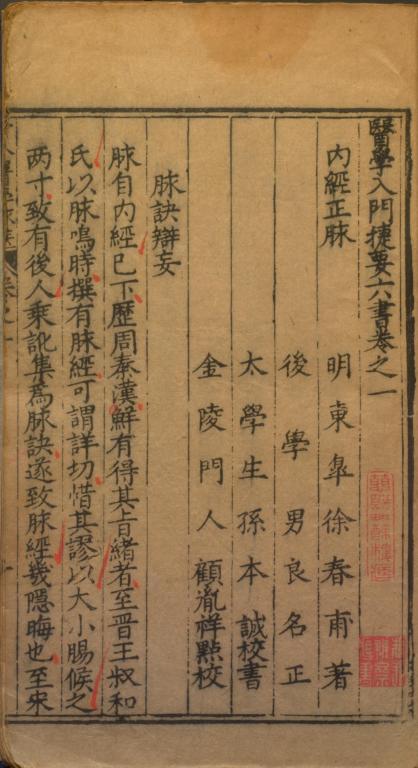 醫學入門捷要六書卷之一
內經正脉
明東臯徐春甫著
後學男良名正
太學生孫本誠校書
金陵門人顧胤祥點校
脉訣辯妄
脉自內經已下歷周秦漢鮮有得其言緒者至晉王叔和
氏以脉鳴時撰有脉經可謂詳切惜其謬以大小腸候之
两寸致有後人乘訛集爲脉訣遂致脉經幾隱晦也至宋